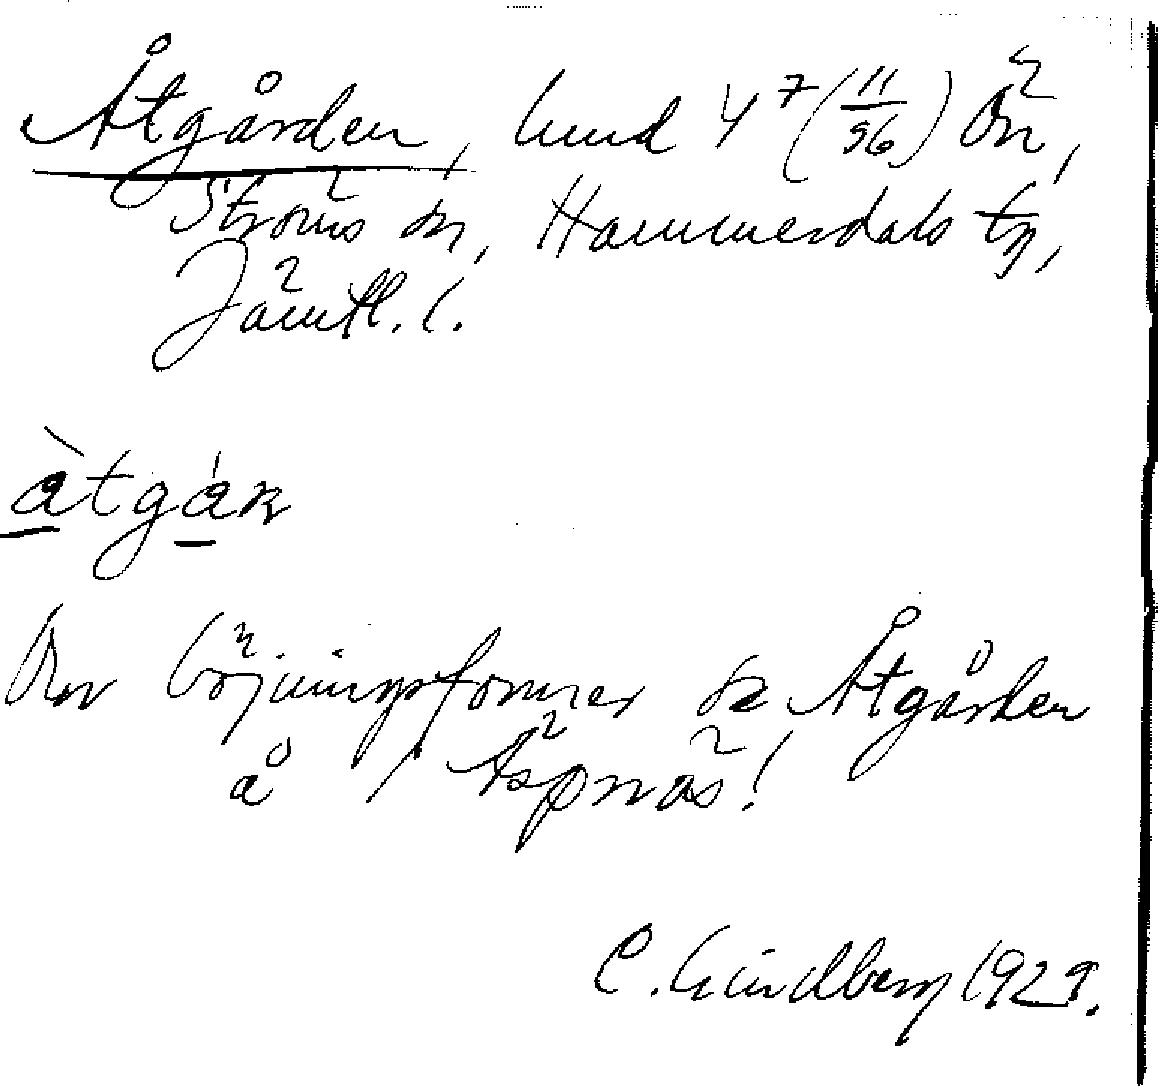 Åtgården, hmd 4⁷ (11/56) Ön,
Ströms sn, Hammerdals tg,
Jämtl. l.
àtgák
Om böjningsformer se Åtgården
å Äspnäs!
C. Lindberg 1929.